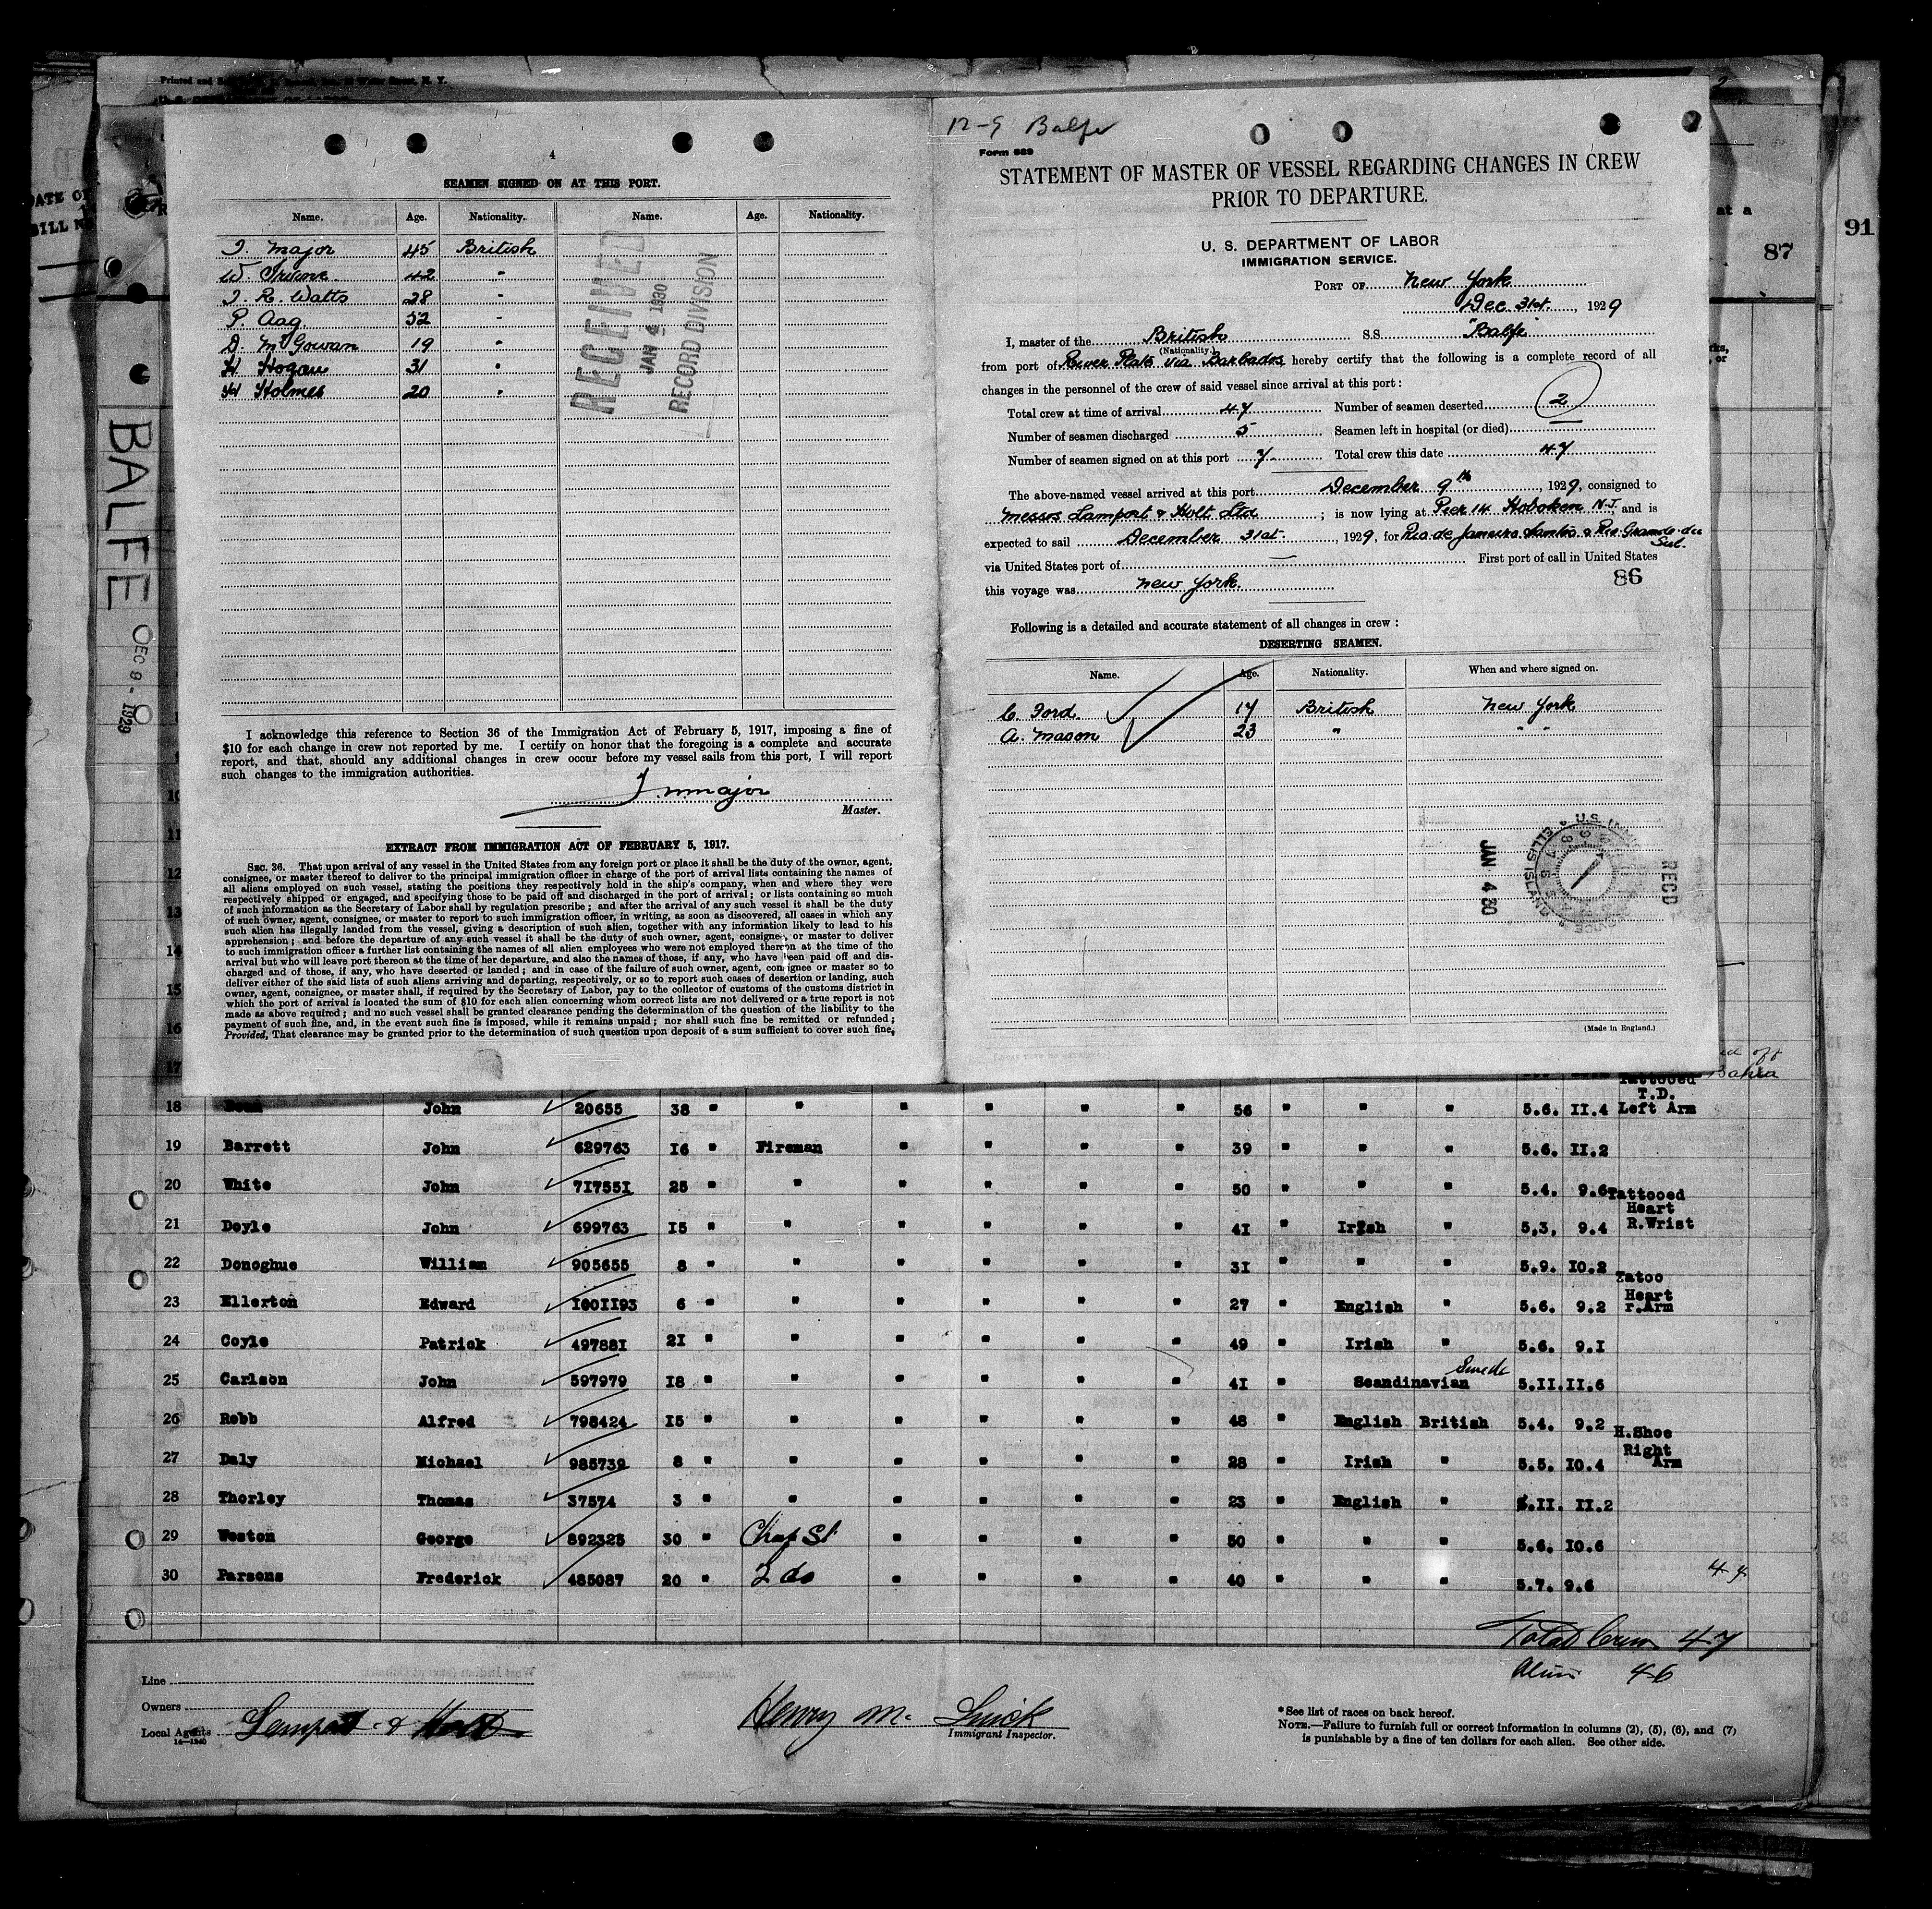 Printed and
N. Y.
4
SEAMEN SIGNED ON AT THIS PORT.
Name. Age. Nationality. Name. Age. Nationality.
J. Major 45 British
W. Irvine 42 "
J. R. Watts 28 "
P. Aag 32 "
D. McGowan 19 "
H Hogan 31 "
H Holmes 20 "
RECEIVED
JAN 4 1930
RECORD DIVISION
I acknowledge this reference to Section 36 of the Immigration Act of February 5, 1917, imposing a fine of
$10 for each change in crew not reported by me. I certify on honor that the foregoing is a complete and accurate
report, and that, should any additional changes in crew occur before my vessel sails from this port, I will report
such changes to the immigration authorities.
Major
Master.
EXTRACT FROM IMMIGRATION ACT OF FEBRUARY 5, 1917.
SEC. 36. That upon arrival of any vessel in the United States from any foreign port or place it shall be the duty of the owner, agent,
consignee, or master thereof to deliver to the principal immigration officer in charge of the port of arrival lists containing the names of
all aliens employed on such vessel, stating the positions they respectively hold in the ship's company, when and where they were
respectively shipped or engaged, and specifying those to be paid off and discharged in the port of arrival; or lists containing so much
of such information as the Secretary of Labor shall by regulation prescribe; and after the arrival of any such vessel it shall be the duty
of such owner, agent, consignee, or master to report to such immigration officer, in writing, as soon as discovered, all cases in which any
such alien has illegally landed from the vessel, giving a description of such alien, together with any information likely to lead to his
apprehension; and before the departure of any such vessel it shall be the duty of such owner, agent, consignee, or master to deliver
to such immigration officer a further list containing the names of all alien employees who were not employed thereon at the time of the
arrival but who will leave port thereon at the time of her departure, and also the names of those, if any, who have been paid off and dis-
charged and of those, if any, who have deserted or landed; and in case of the failure of such owner, agent, consignee or master so to
deliver either of the said lists of such aliens arriving and departing, respectively, or so to report such cases of desertion or landing, such
owner, agent, consignee, or master shall, if required by the Secretary of Labor, pay to the collector of customs of the customs district in
which the port of arrival is located the sum of $10 for each alien concerning whom correct lists are not delivered or a true report is not
made as above required; and no such vessel shall be granted clearance pending the determination of the question of the liability to the
payment of such fine, and, in the event such fine is imposed, while it remains unpaid; nor shall such fine be remitted or refunded;
Provided, That clearance may be granted prior to the determination of such question upon deposit of a sum sufficient to cover such fine.
12-9 Balfe
Form 689
STATEMENT OF MASTER OF VESSEL REGARDING CHANGES IN CREW
PRIOR TO DEPARTURE.
U. S. DEPARTMENT OF LABOR
IMMIGRATION SERVICE.
PORT OF New York
Dec 31st, 1929
I, master of the British S.S. "Balfe"
(Nationality.)
from port of River Plate via Barbados hereby certify that the following is a complete record of all
changes in the personnel of the crew of said vessel since arrival at this port:
Total crew at time of arrival 47 Number of seamen deserted 2
Number of seamen discharged 5 Seamen left in hospital (or died)
Number of seamen signed on at this port 7 Total crew this date 47
The above-named vessel arrived at this port December 9th, 1929, consigned to
Messrs Lamport & Holt Ltd; is now lying at Pier 14 Hoboken N.J. and is
expected to sail December 31st, 1929, for Rio de Janeiro Santos & Rio Grande do
Sul.
via United States port of — First port of call in United States
this voyage was New York.
86
Following is a detailed and accurate statement of all changes in crew:
DESERTING SEAMEN.
Name. Age. Nationality. When and where signed on.
C. Ford 17 British New York
A. Mason 23 " " "
JAN 4 30
RECD
U.S.
ELLIS ISLAND
(Made in England.)
DATE OF
BILL
at a
87
91
BALFE
DEC 9 - 1929
10
11
12
13
14
15
16
17
Bahia
Tattooed
T.D.
18 John 20655 38 " " " " " " 56 " " " 5.6. II.4 Left Arm
19 Barrett John 629763 16 " Fireman " " " " 39 " " " 5.6. II.2
20 White John 717551 25 " " " " " " 50 " " " 5.4. 9.6 Tattooed
Heart
21 Doyle John 699763 15 " " " " " " 41 " Irish " 5.3. 9.4 R.Wrist
22 Donoghue William 905655 8 " " " " " " 31 " " " 5.9. 10.2
Tatoo
Heart
23 Ellerton Edward 1001193 6 " " " " " " 27 " English " 5.6. 9.2 r.Arm
24 Coyle Patrick 497881 21 " " " " " " 49 " Irish " 5.6. 9.1
Swede
25 Carlson John 597979 18 " " " " " " 41 " Scandinavian 5.II. II.6
26 Robb Alfred 798424 15 " " " " " " 48 " English British 5.4. 9.2
H.Shoe
Right
27 Daly Michael 985739 8 " " " " " " 28 " Irish " 5.5. 10.4 Arm
28 Thorley Thomas 37574 3 " " " " " " 23 " English " 5.II. II.2
29 Weston George 892325 30 " " " " " 50 " " " 5.6. 10.6
30 Parsons Frederick 485087 20 " 2 do " " " " 40 " " " 5.7. 9.6
47
Total Crew 47
Alien 46
Line
Owners
Local Agents Lamport & Holt
14—1240
Henry Mc
Immigrant Inspector.
*See list of races on back hereof.
NOTE.—Failure to furnish full or correct information in columns (2), (5), (6), and (7)
is punishable by a fine of ten dollars for each alien. See other side.